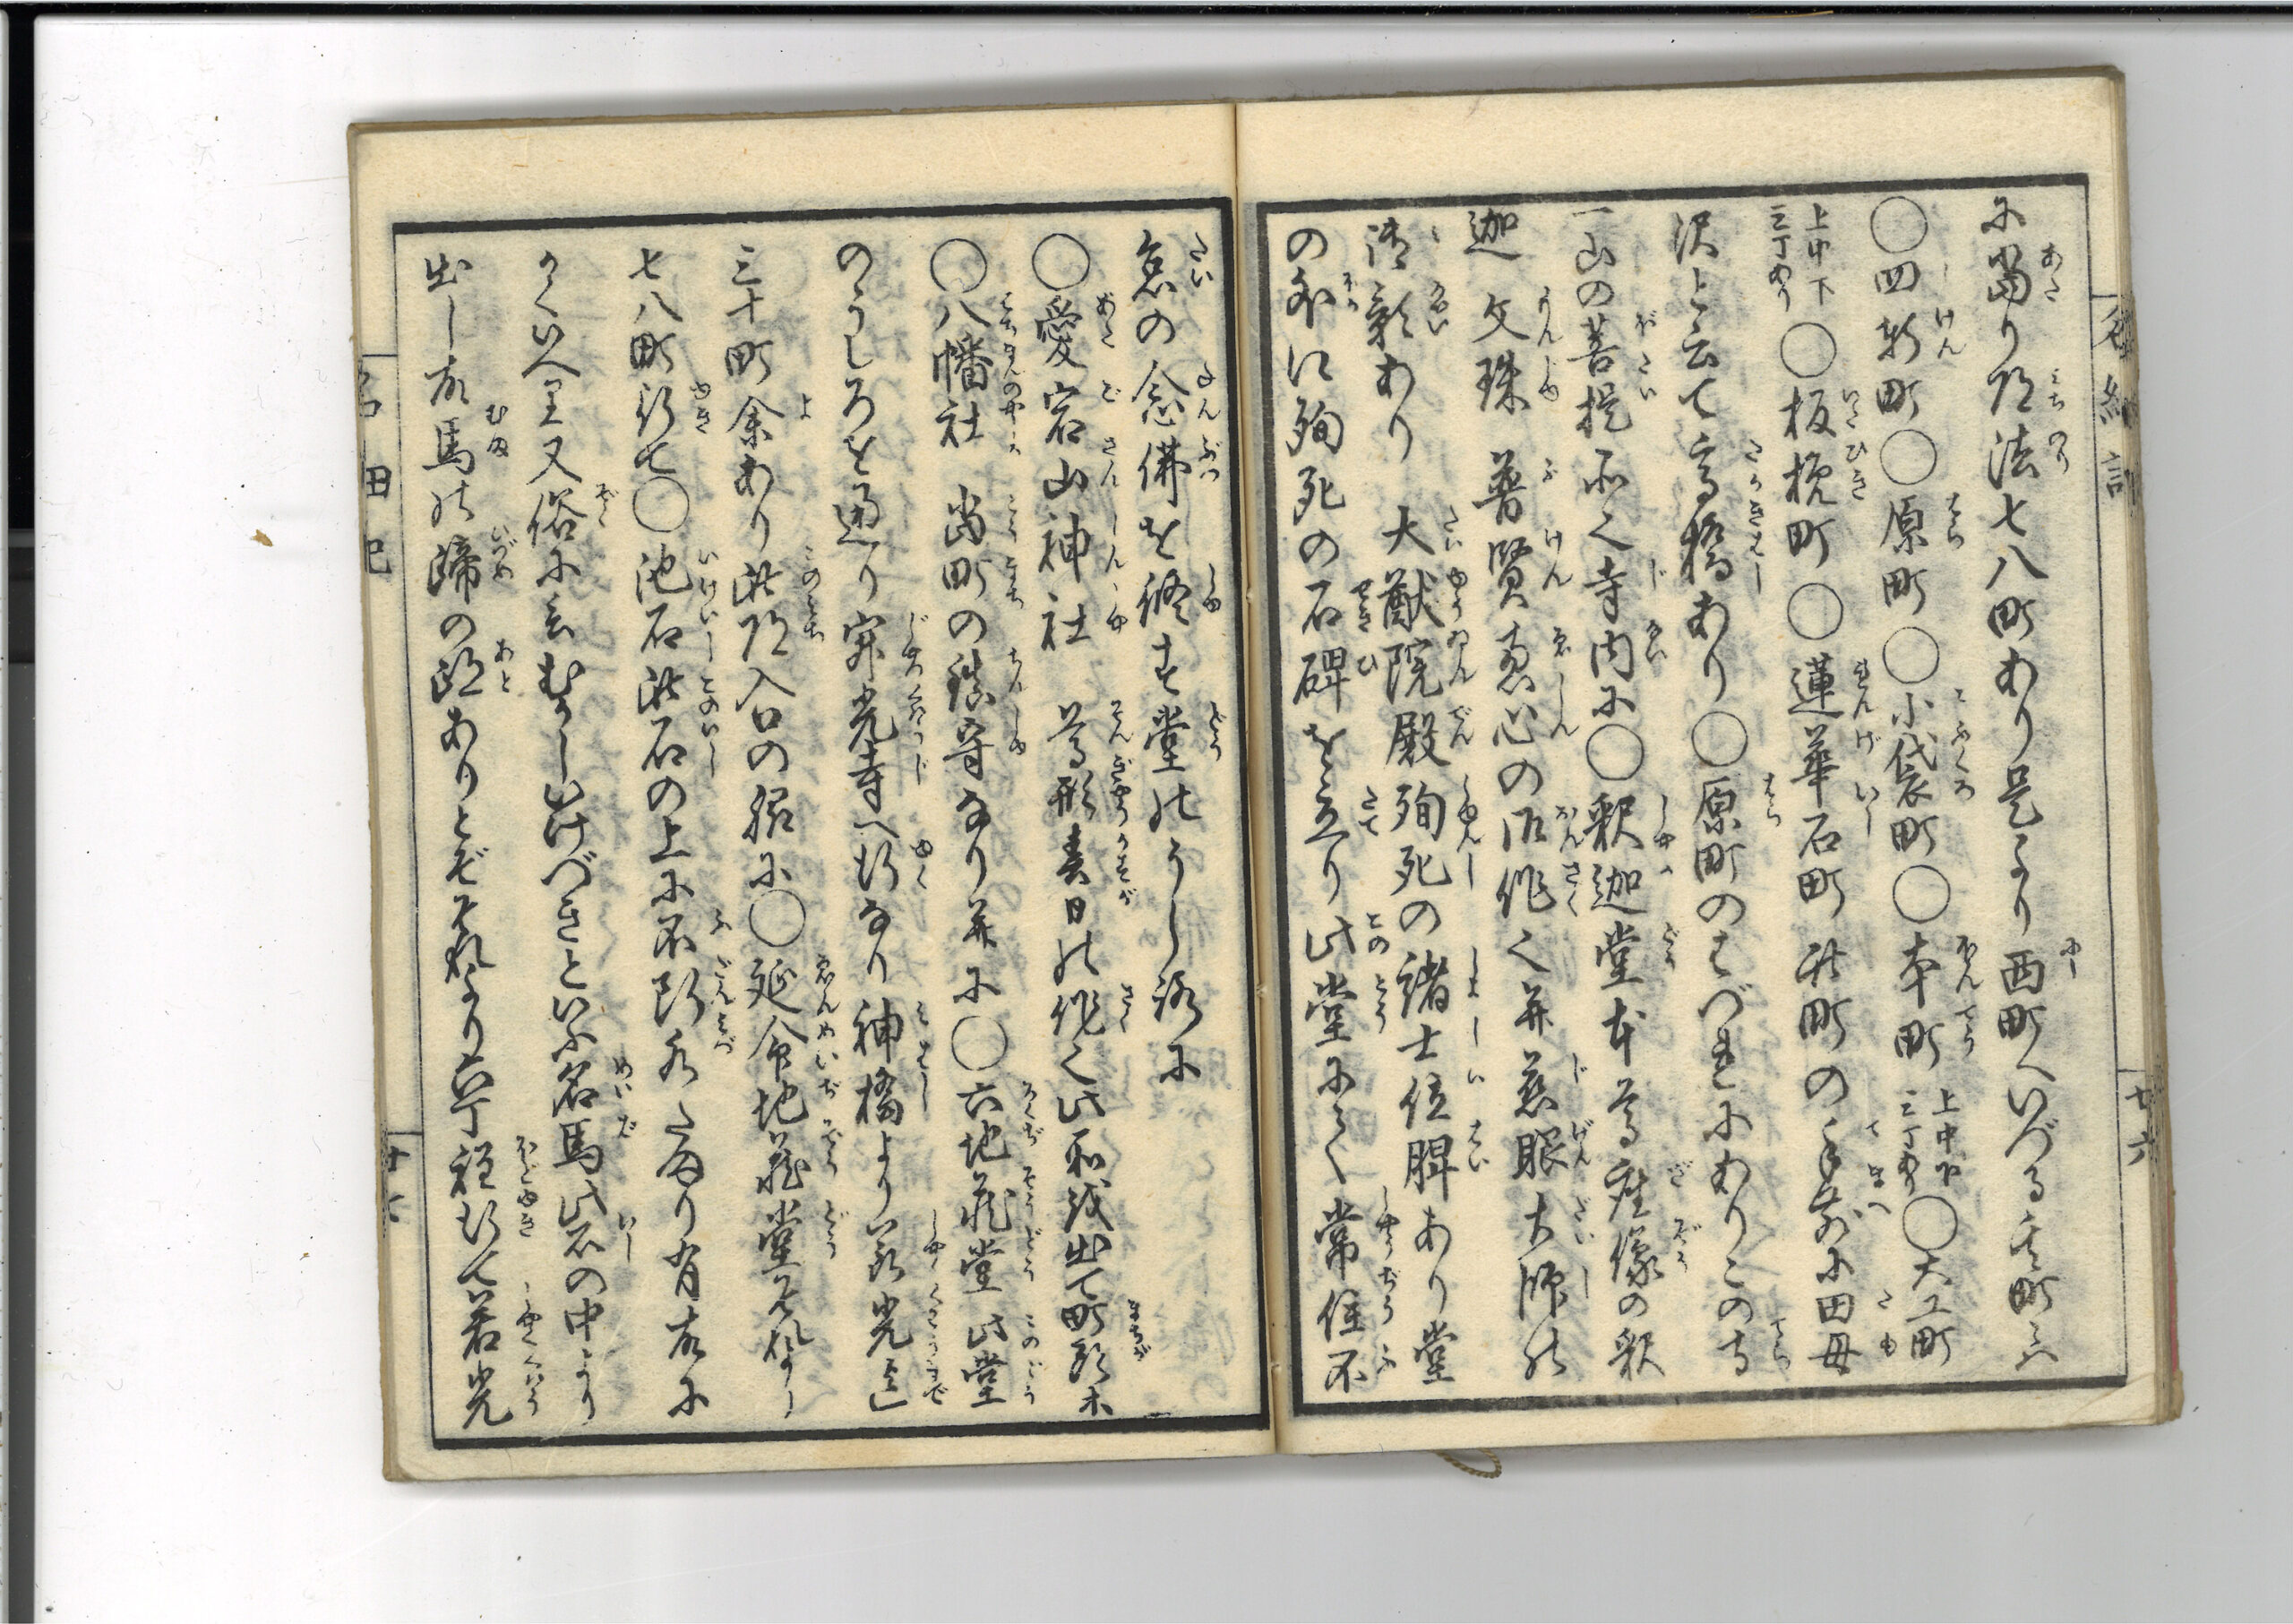 に當り道法七八町あり是より西町へいづる其町には
〇四軒町〇原町〇小袋町〇本町上中下三丁あり〇大工町
上中下三丁あり〇板挽町〇蓮華石町此町の手前に田母
沢と云て高橋あり〇原町のはづれにありこの寺
一山の菩提所也寺内に〇釈迦堂本尊座像の釈
迦文珠普賢恵心の御作也并慈眼大師の
御影あり大猷院殿殉死の諸士位牌あり堂
の外に殉死の石碑を立り此堂にて常住不
怠の念佛を修す堂のうしろに
〇愛宕山神社尊形春日の作也此所を出て町
〇八幡社当町の鎮守なり并に〇六地蔵堂此堂
のうしろを通り寂光寺へ行なり神橋より寂光迄
三十町余あり此道入口の脇に〇延命地蔵堂
七八町行て〇池石此石の上に不断水たまり有右に
いへり又俗に云むかしいけづきといふ名馬此石の中より
出し故馬の蹄の跡ありとぞそれより六丁程行て若光
廿六